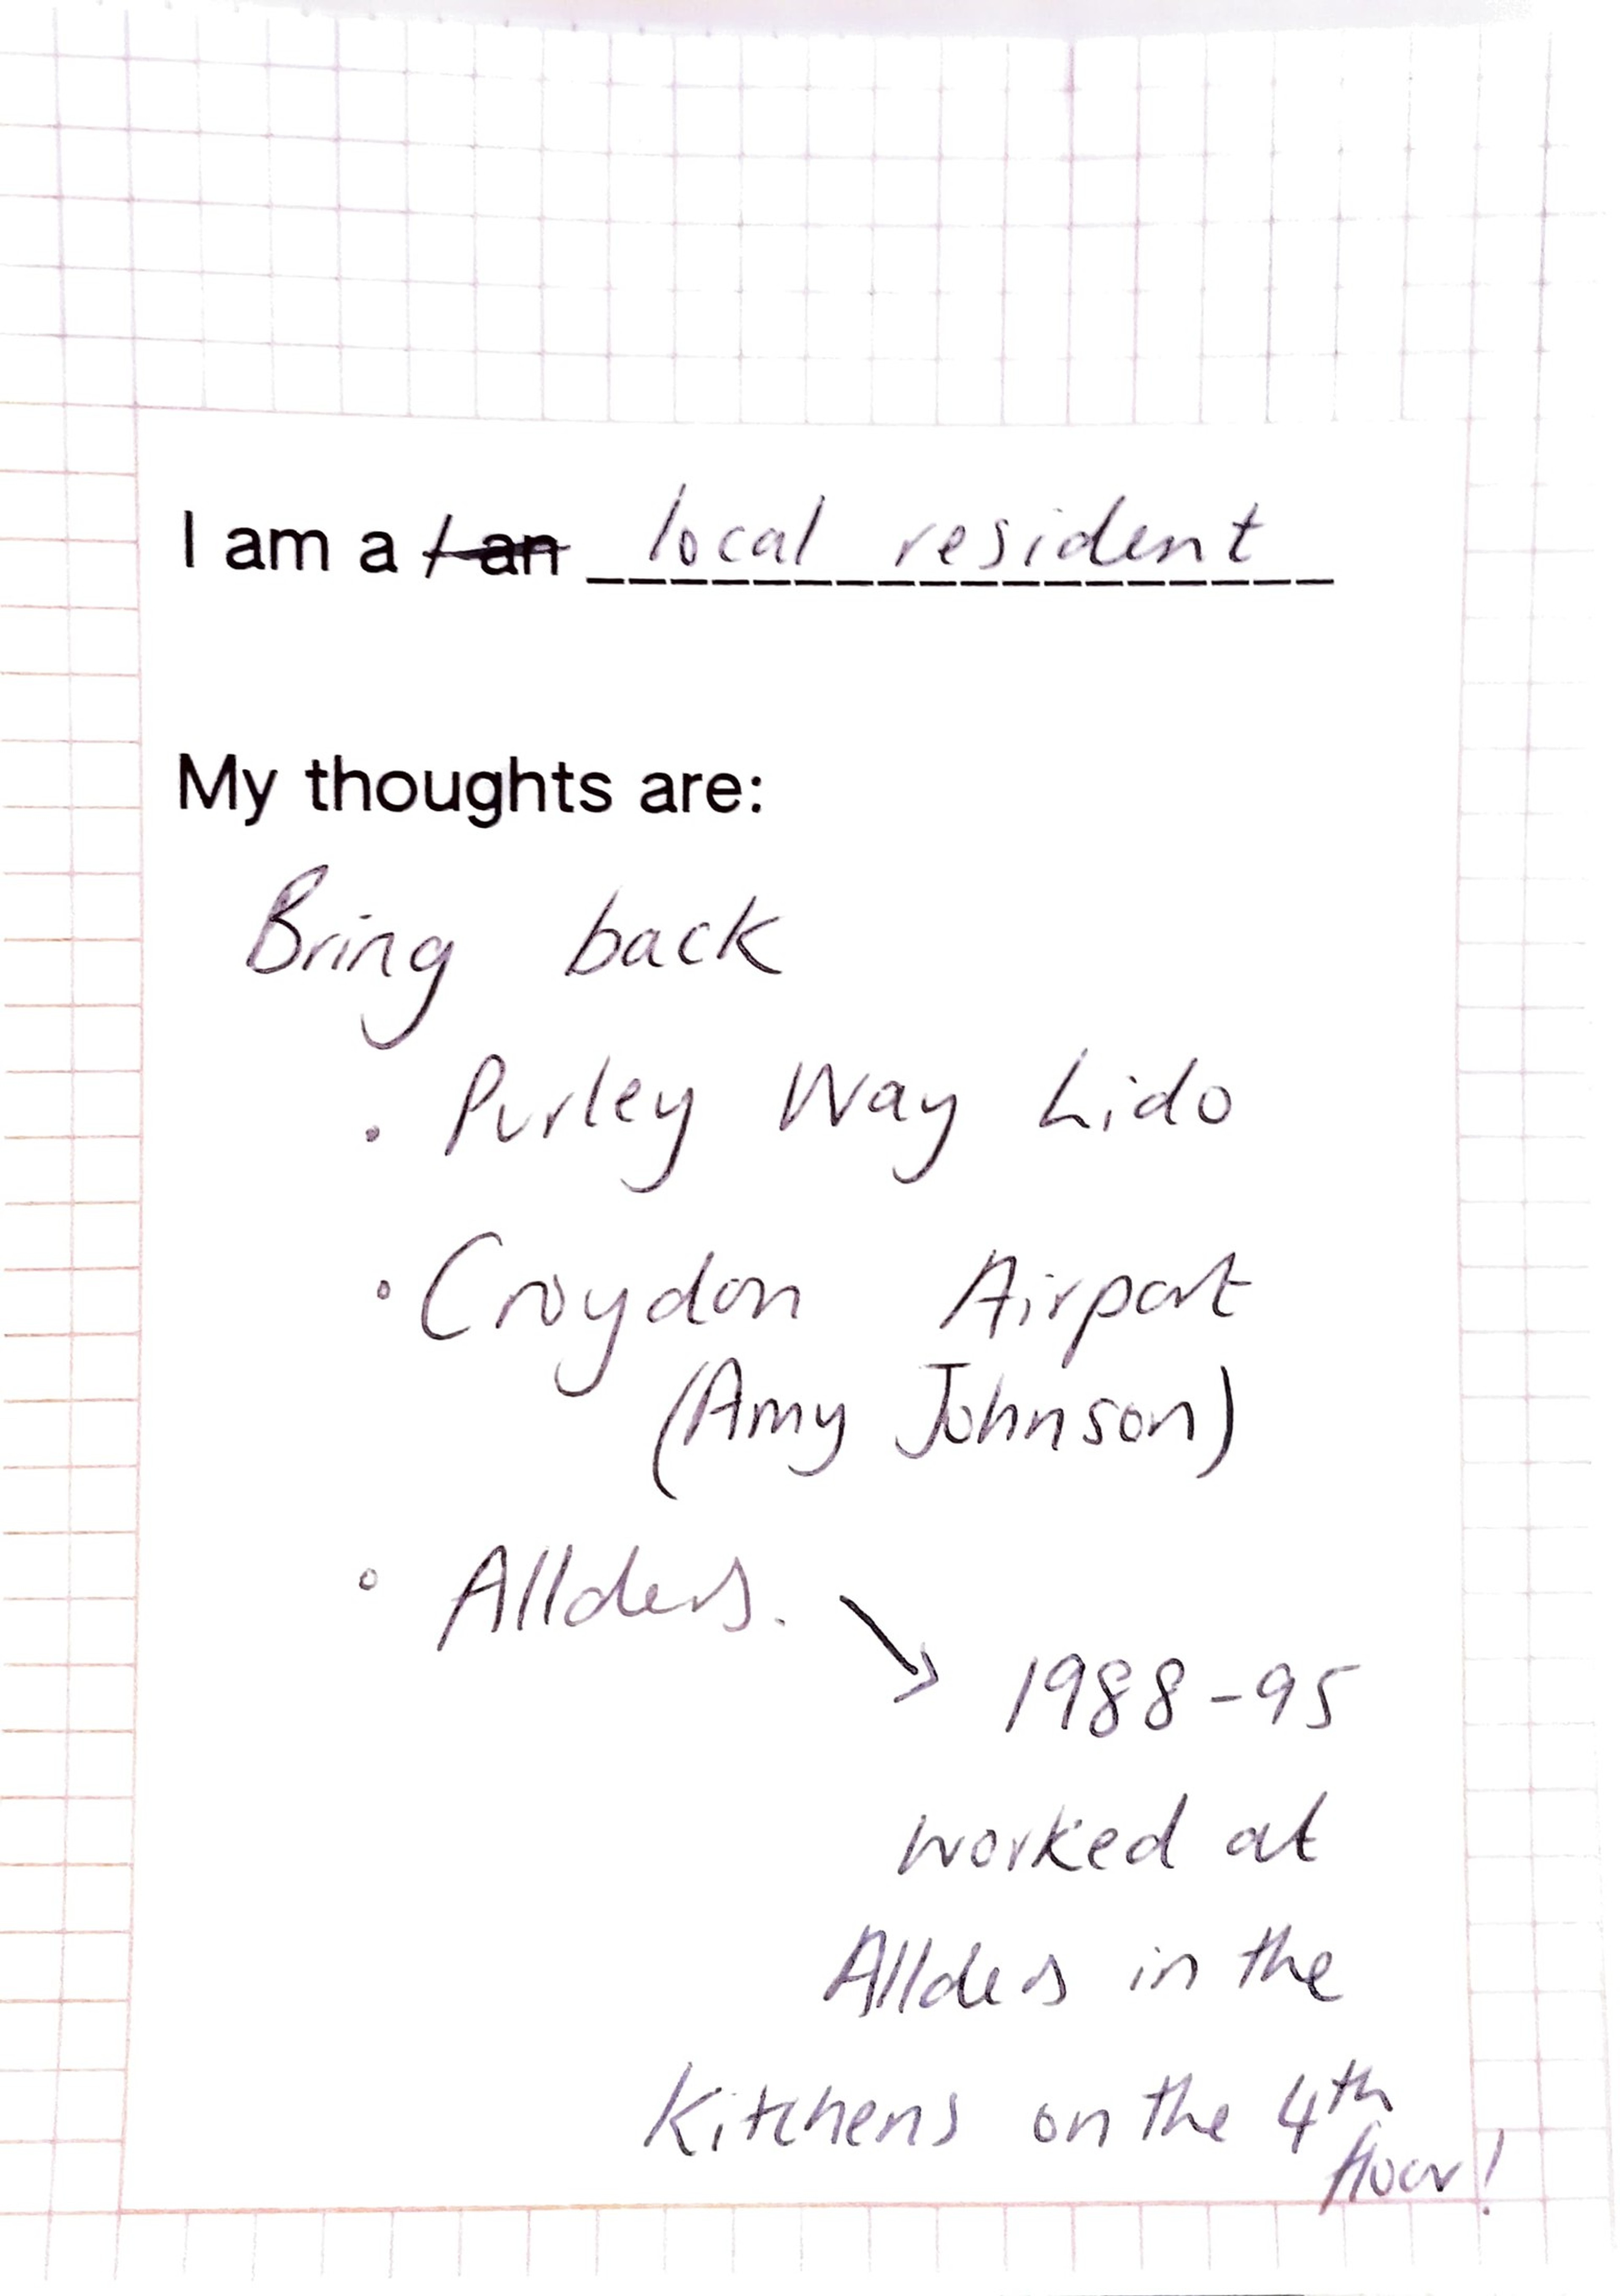 I am a / an local resident
My thoughts are:
Bring back
• Purley Way Lido
• Croydon Airport
(Amy Johnson)
• Allders. ↘
1988-95
worked at
Allders in the
Kitchens on the 4th
floor!